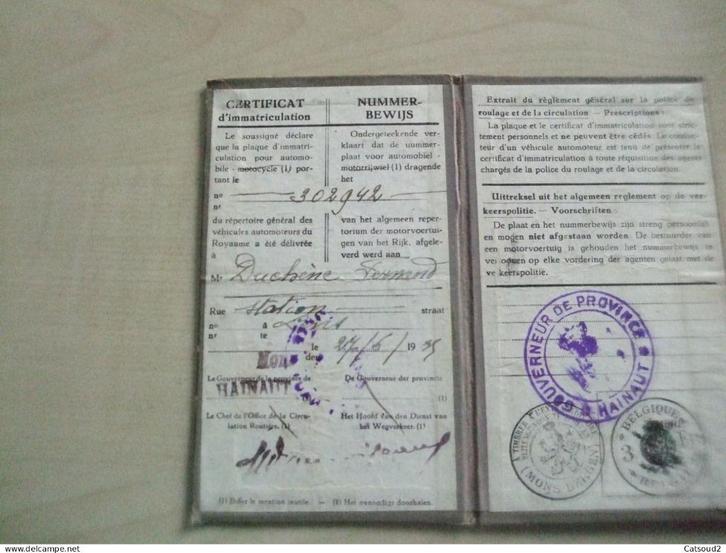 CERTIFICAT
d'immatriculation
Le soussigné déclare
que la plaque d'immatri-
culation pour automo-
bile - motocycle (1) por-
tant le
nº
nr
302942
du répertoire général des
véhicules automoteurs du
Royaume a été délivrée
à
Mr Duchène Fernand
Rue Station straat
nº à
nr te
le
den 27/6/1935
Mons
Le Gouverneur de la province de
HAINAUT
Le Chef de l'Office de la Circu-
lation Routière. (1)
(1) Biffer la mention inutile. — (1) Het onnoodige doorhalen.
NUMMER-
BEWIJS
Ondergeteekende ver-
klaart dat de nummer-
plaat voor automobiel -
motorrijwiel (1) dragende
het
van het algemeen reper-
torium der motorvoertui-
gen van het Rijk, afgele-
verd werd aan
De Gouverneur der provincie
(1)
Het Hoofd van den Dienst van
het Wegverkeer. (1)
Extrait du règlement général sur la police du
roulage et de la circulation. — Prescriptions:
La plaque et le certificat d'immatriculation sont stric-
tement personnels et ne peuvent être cédés. Le conduc-
teur d'un véhicule automoteur est tenu de présenter le
certificat d'immatriculation à toute réquisition des agents
chargés de la police du roulage et de la circulation.
Uittreksel uit het algemeen reglement op de ver-
keerspolitie. — Voorschriften:
De plaat en het nummerbewijs zijn streng persoonlijk
en mogen niet afgestaan worden. De bestuurder van
een motorvoertuig is gehouden het nummerbewijs te
vertoonen op elke vordering der agenten gelast met de
verkeerspolitie.
GOUVERNEUR DE PROVINCE
HAINAUT
(MONS BERGEN)
BELGIQUE
3
Catsoud2